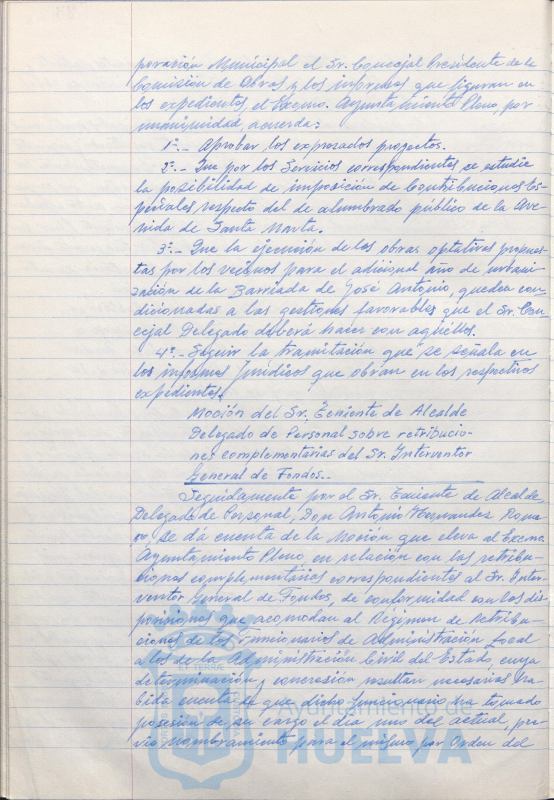 poración Municipal el Sr. Concejal Presidente de la
Comisión de Obras y los informes que figuran en
los expedientes, el Excmo. Ayuntamiento Pleno, por
unanimidad, acuerda:
1º.- Aprobar los expresados proyectos.
2º.- Que por los Servicios correspondientes se estudie
la posibilidad de imposición de Contribuciones Es-
peciales respecto del de alumbrado público de la Ave-
nida de Santa Marta.
3º.- Que la ejecución de las obras optativas propues-
tas por los vecinos para el adicional año de urbani-
zación de la Barriada de José Antonio, queden con-
dicionadas a las gestiones favorables que el Sr. Con-
cejal Delegado deberá hacer con aquéllos.
4º.- Seguir la tramitación que se señala en
los informes jurídicos que obran en los respectivos
expedientes.
Moción del Sr. Teniente de Alcalde
Delegado de Personal sobre retribucio-
nes complementarias del Sr. Interventor
General de Fondos.-
Seguidamente por el Sr. Teniente de Alcalde
Delegado de Personal, Don Antonio Hernandez Roma-
ro, se dá cuenta de la Moción que eleva al Excmo.
Ayuntamiento Pleno en relación con las retribu-
ciones complementarias correspondientes al Sr. Inter-
ventor General de Fondos, de conformidad con las dis-
posiciones que acomodan el Régimen de Retribu-
ciones de los Funcionarios de Administración Local
a los de la Administración Civil del Estado, cuya
determinación y concesión resultan necesarias ha-
bida cuenta de que dicho funcionario ha tomado
posesión de su cargo el día uno del actual, pre-
vio nombramiento para el mismo por Orden del
Ayuntamiento de
HUELVA